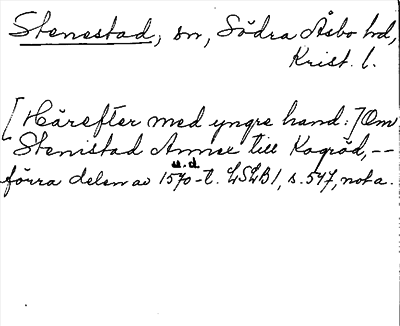 Stenestad, sn, Södra Åsbo hd,
Krist. l.
[Härefter med yngre hand:] Om
Stenistad Annex till Kogröd,--
u.d.
förra delen av 1570-t. LSLB1, s. 547, nota.